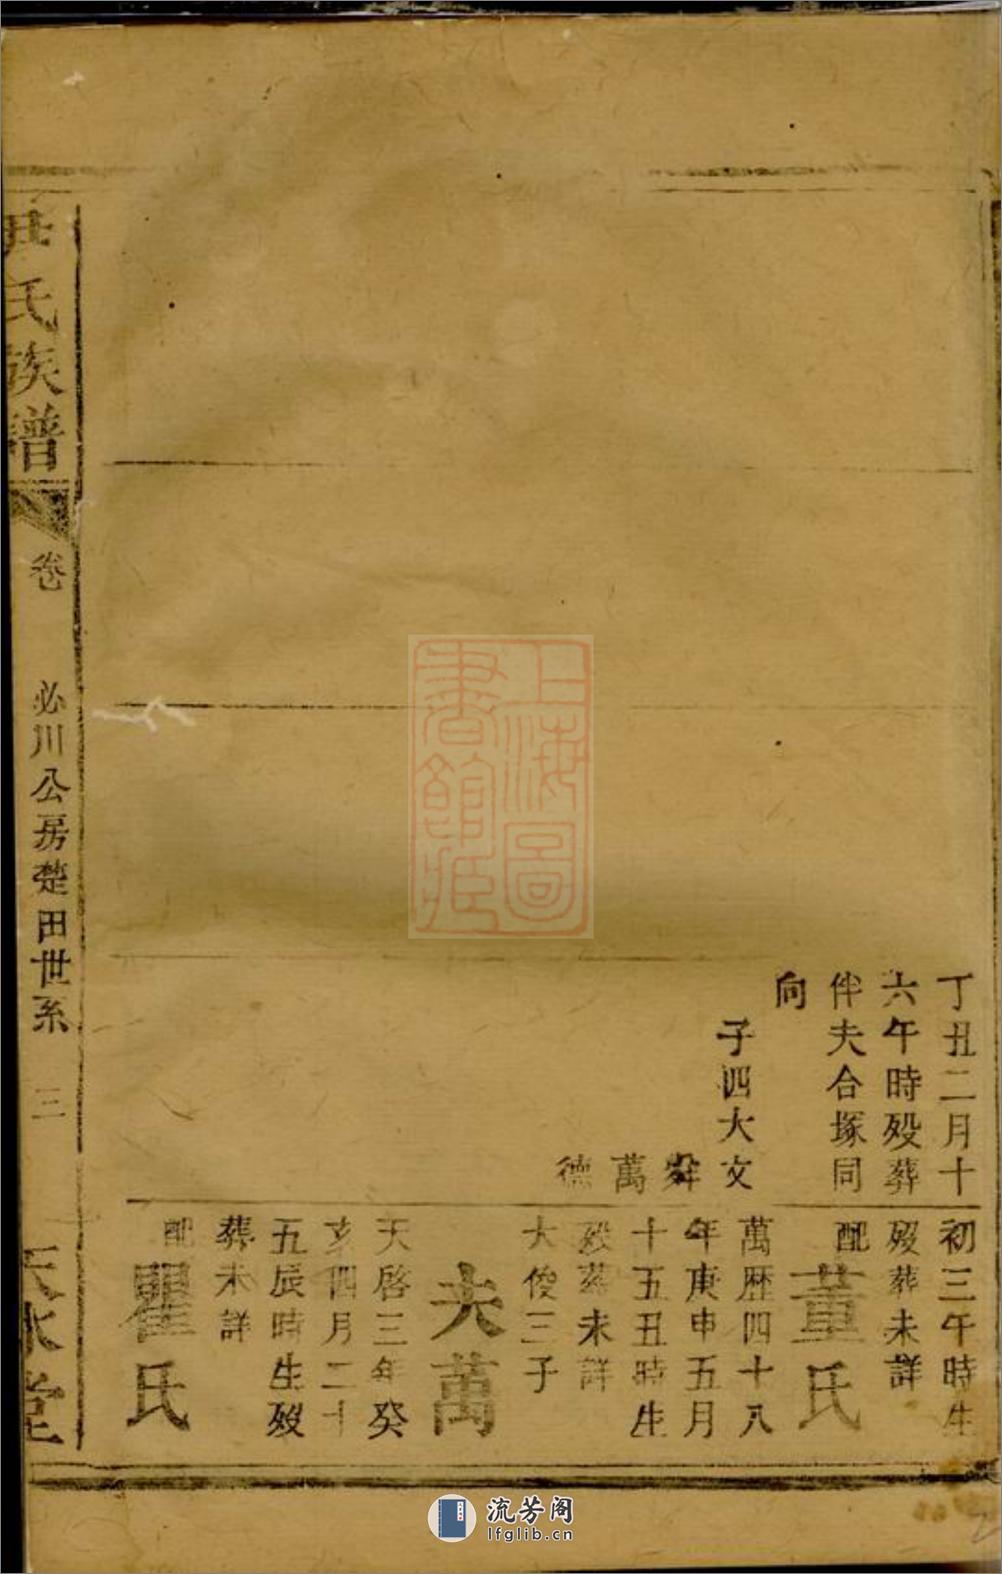 丁丑二月十
六午時歿葬
伴夫合塚同
向
子四大文
舜
萬
德
初三午時生
歿葬未詳
配
董氏
萬歷四十八
年庚申五月
十五丑時生
歿葬未詳
大俊三子
大萬
天啓三年癸
亥四月二十
五辰時生歿
葬未詳
配
瞿氏
氏族譜
卷
必川公房楚田世系
三
天水堂
上海圖書館藏
流芳阁
lfglib.cn